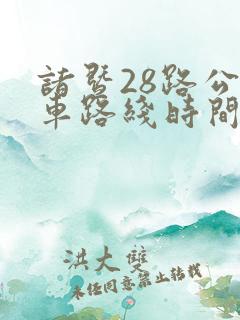 諸暨28路公
車路綫時間
洪大雙
未任同意禁止转载